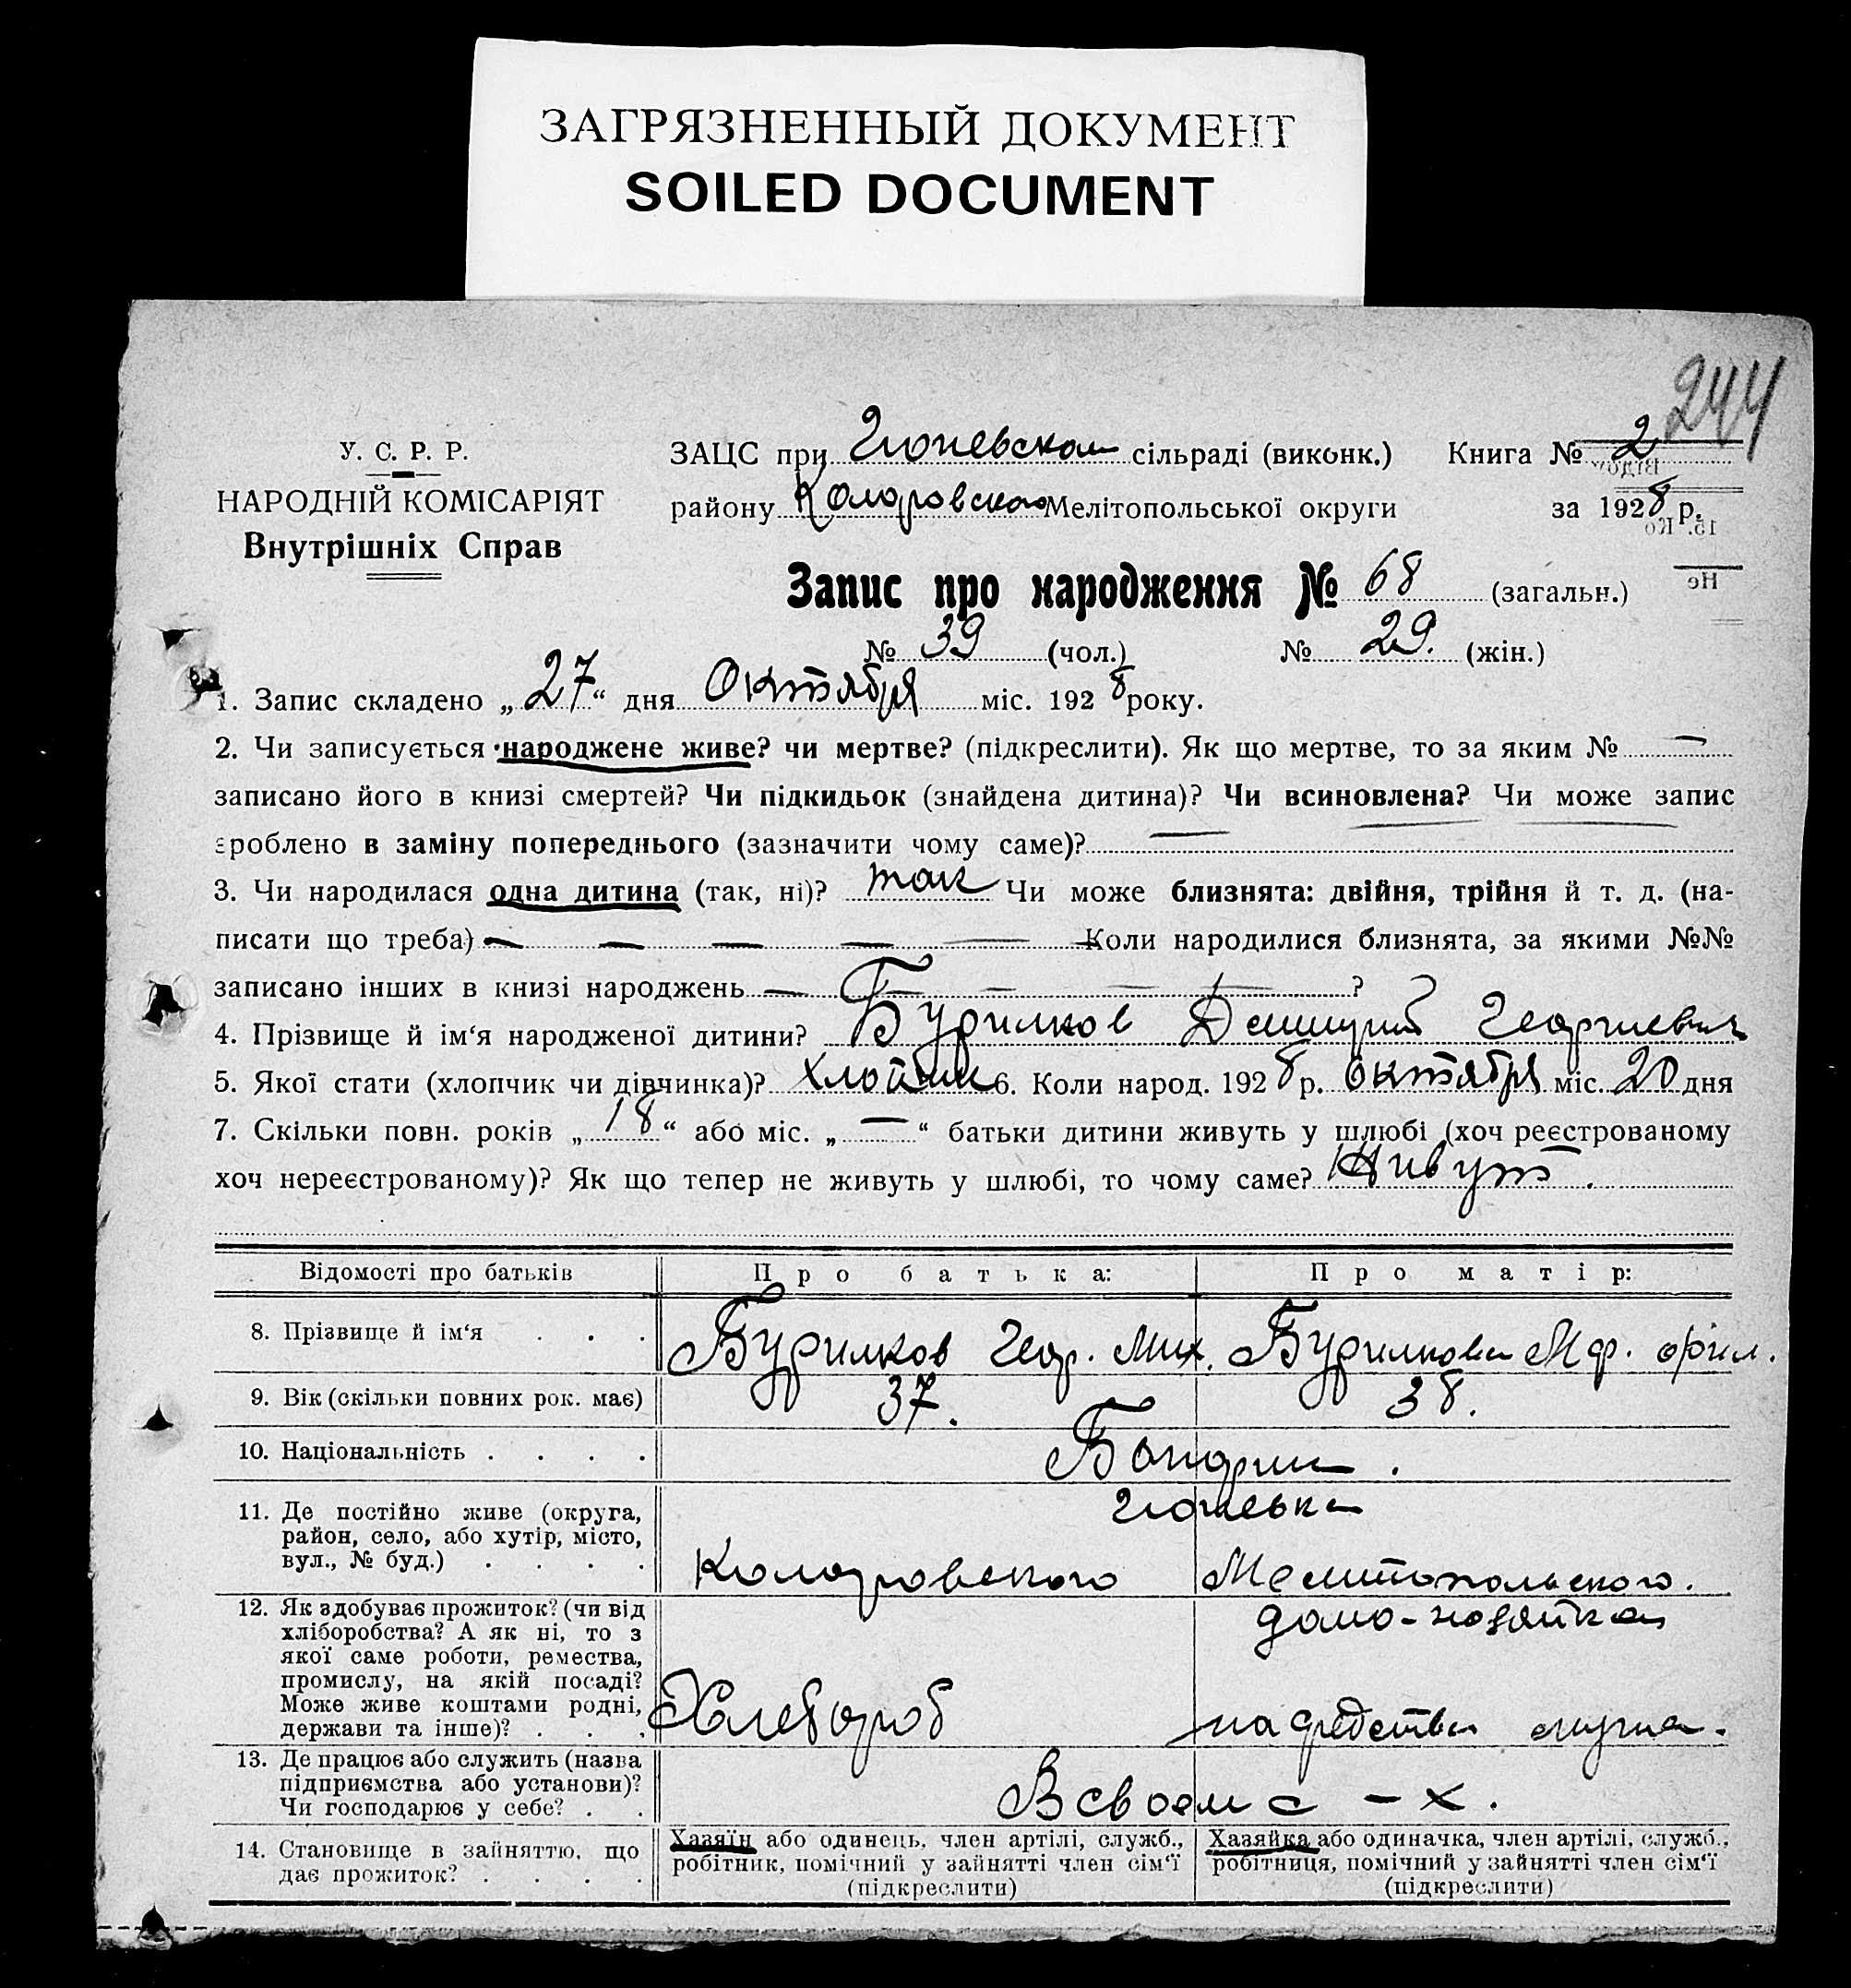 ЗАГРЯЗНЕННЫЙ ДОКУМЕНТ
SOILED DOCUMENT
244
У. С. Р. Р.
НАРОДНІЙ КОМІСАРІЯТ
Внутрішніх Справ
ЗАЦС при Гюневском сільраді (виконк.) Книга № 2
району Коларовского Мелітопольської округи за 1928 р.
Запис про народження № 68 (загальн.)
№ 39 (чол.) № 29. (жін.)
1. Запис складено „27“ дня Октября міс. 1928 року.
2. Чи записується народжене живе? чи мертве? (підкреслити). Як що мертве, то за яким № —
записано його в книзі смертей? Чи підкидьок (знайдена дитина)? Чи всиновлена? Чи може запис
зроблено в заміну попереднього (зазначити чому саме)? —
3. Чи народилася одна дитина (так, ні)? так Чи може близнята: двійня, трійня й т. д. (на-
писати що треба) — — — — — — Коли народилися близнята, за якими №№
записано інших в книзі народжень — — — — — ?
4. Прізвище й ім‘я народженої дитини? Бурилков Дмитрий Георгиевич
5. Якої стати (хлопчик чи дівчинка)? 6. Коли народ. 1928 р. октября міс. 20 дня
7. Скільки повн. років „18“ або міс. „—“ батьки дитини живуть у шлюбі (хоч реєстрованому
хоч нереєстрованому)? Як що тепер не живуть у шлюбі, то чому саме? Живут.
Відомості про батьків Про батька: Про матір:
8. Прізвище й ім‘я . . . Бурилков Геор. Мих. Бурилкова
9. Вік (скільки повних рок. має) 37. 38.
10. Національність . . . . Болгрин.
11. Де постійно живе (округа,
район, село, або хутір, місто,
вул., № буд.) . . . .
Гюневка
Коларовского Мелитопольского.
12. Як здобуває прожиток? (чи від
хліборобства? А як ні, то з
якої саме роботи, ремества,
промислу, на якій посаді?
Може живе коштами родні,
держави та інше)? . . .
Хлебороб
домо-хозяйка
на средства мужа.
13. Де працює або служить (назва
підприємства або установи)?
Чи господарює у себе? . .
В своем с-х.
14. Становище в зайняттю, що
дає прожиток? . . . .
Хазяїн або одинець, член артілі, служб.,
робітник, помічний у зайнятті член сім‘ї
(підкреслити)
Хазяйка або одиначка, член артілі, служб.,
робітниця, помічний у зайнятті член сім‘ї
(підкреслити)